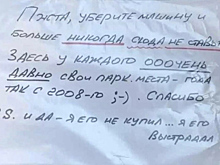 ПЖСТА, УБЕРИТЕ МАШИНУ И
БОЛЬШЕ НИКОГДА СЮДА НЕ СТАВЬТЕ
ЗДЕСЬ У КАЖДОГО ОООЧЕНЬ
ДАВНО СВОИ ПАРК. МЕСТА - ГОДА
ТАК С 2008-ГО ;-). СПАСИБО
S. И ДА - Я ЕГО НЕ КУПИЛ... Я ЕГО
ВЫСТРАДАЛ